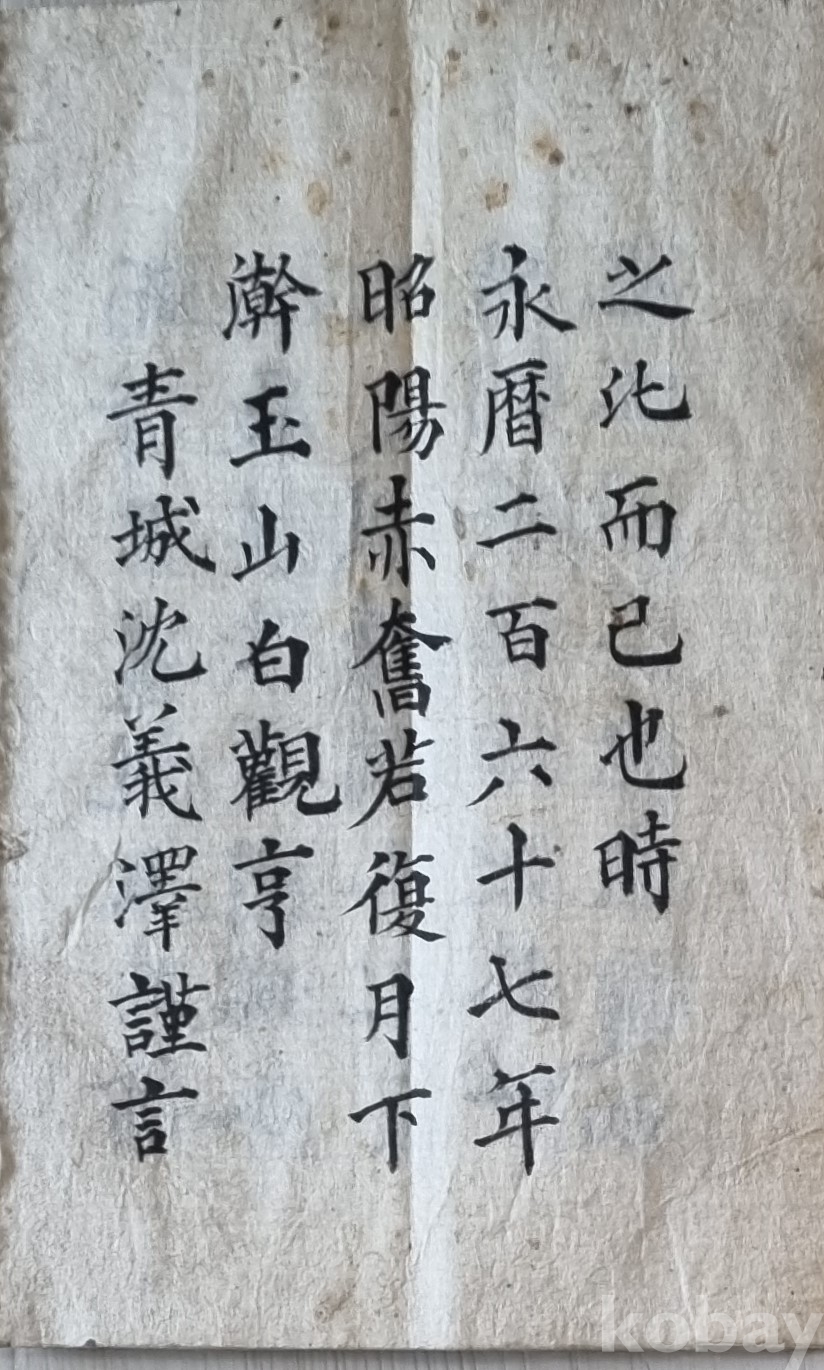 之沘而已也時
永曆二百六十七年
昭陽赤奮若復月下
澣玉山白觀亨
青城沈義澤謹言
kobay